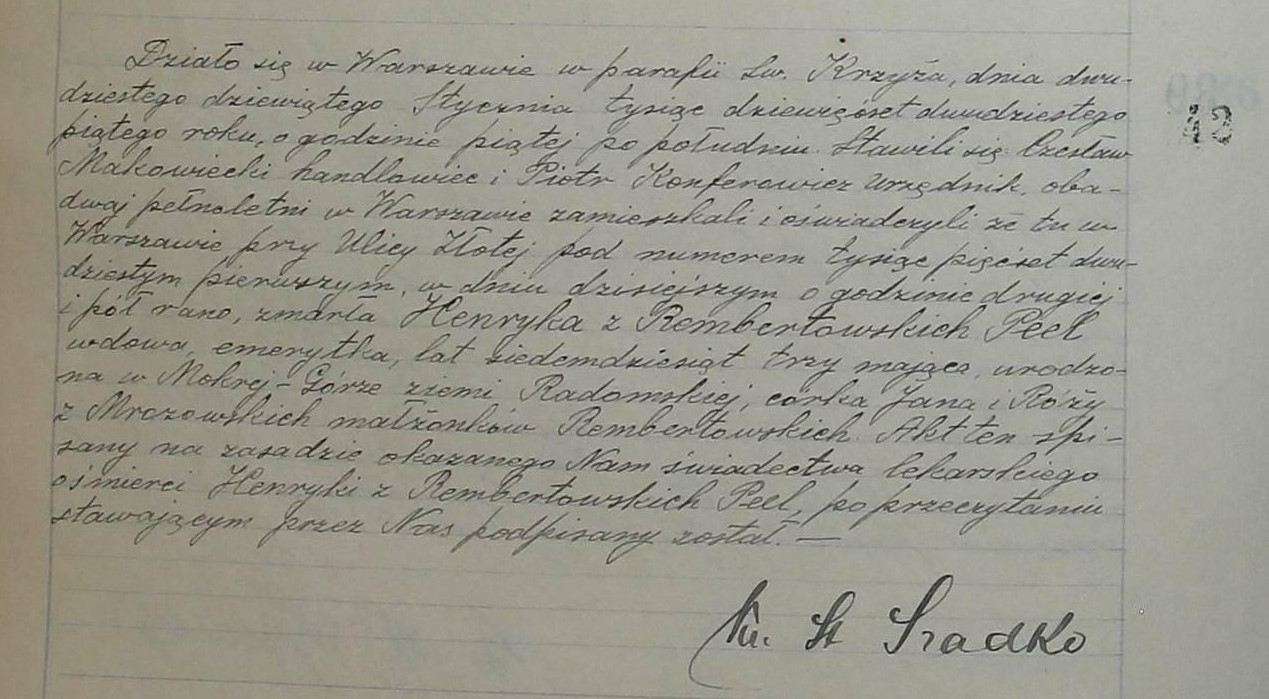 Działo się w Warszawie w parafii św. Krzyża, dnia dwu-
dziestego dziewiątego Stycznia tysiąc dziewięćset dwudziestego
piątego roku, o godzinie piątej po południu. Stawili się Czesław
Makowiecki handlowiec i Piotr Konferowicz urzędnik, oba-
dwaj pełnoletni w Warszawie zamieszkali i oświadczyli że tu w
Warszawie przy Ulicy Złotej pod numerem tysiąc pięćset dwu-
dziestym pierwszym, w dniu dzisiejszym o godzinie drugiej
i pół rano, zmarła Henryka z Rembertowskich Peel
wdowa, emerytka, lat siedemdziesiąt trzy mająca, urodzo-
na w Mokrej-Górze ziemi Radomskiej, córka Jana i Róży
z Mrozowskich małżonków Rembertowskich. Akt ten spi-
sany na zasadzie okazanego Nam świadectwa lekarskiego
o śmierci Henryki z Rembertowskich Peel, po przeczytaniu
stawającym przez Nas podpisany został. —
Ks. St Sradko